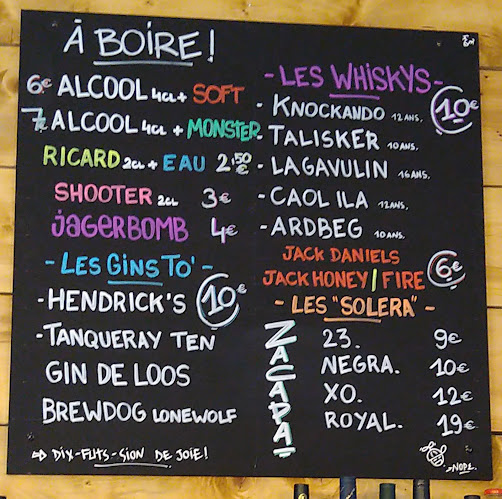 À BOIRE!
6€ ALCOOL 4CL + SOFT
7€ ALCOOL 4CL + MONSTER
RICARD 2CL + EAU 2€50
SHOOTER 2CL 3€
JAGERBOMB 4€
- LES GINS TO' -
- HENDRICK'S 10€
- TANQUERAY TEN
GIN DE LOOS
BREWDOG LONEWOLF
⇨ DIX-FLITS-SION DE JOIE!
- LES WHISKYS -
- KNOCKANDO 12 ANS. 10€
- TALISKER 10 ANS.
- LAGAVULIN 16 ANS.
- CAOL ILA 12 ANS.
- ARDBEG 10 ANS.
JACK DANIELS
JACK HONEY / FIRE 6€
- LES "SOLERA" -
ZACAPA
23. 9€
NEGRA. 10€
XO. 12€
ROYAL. 19€